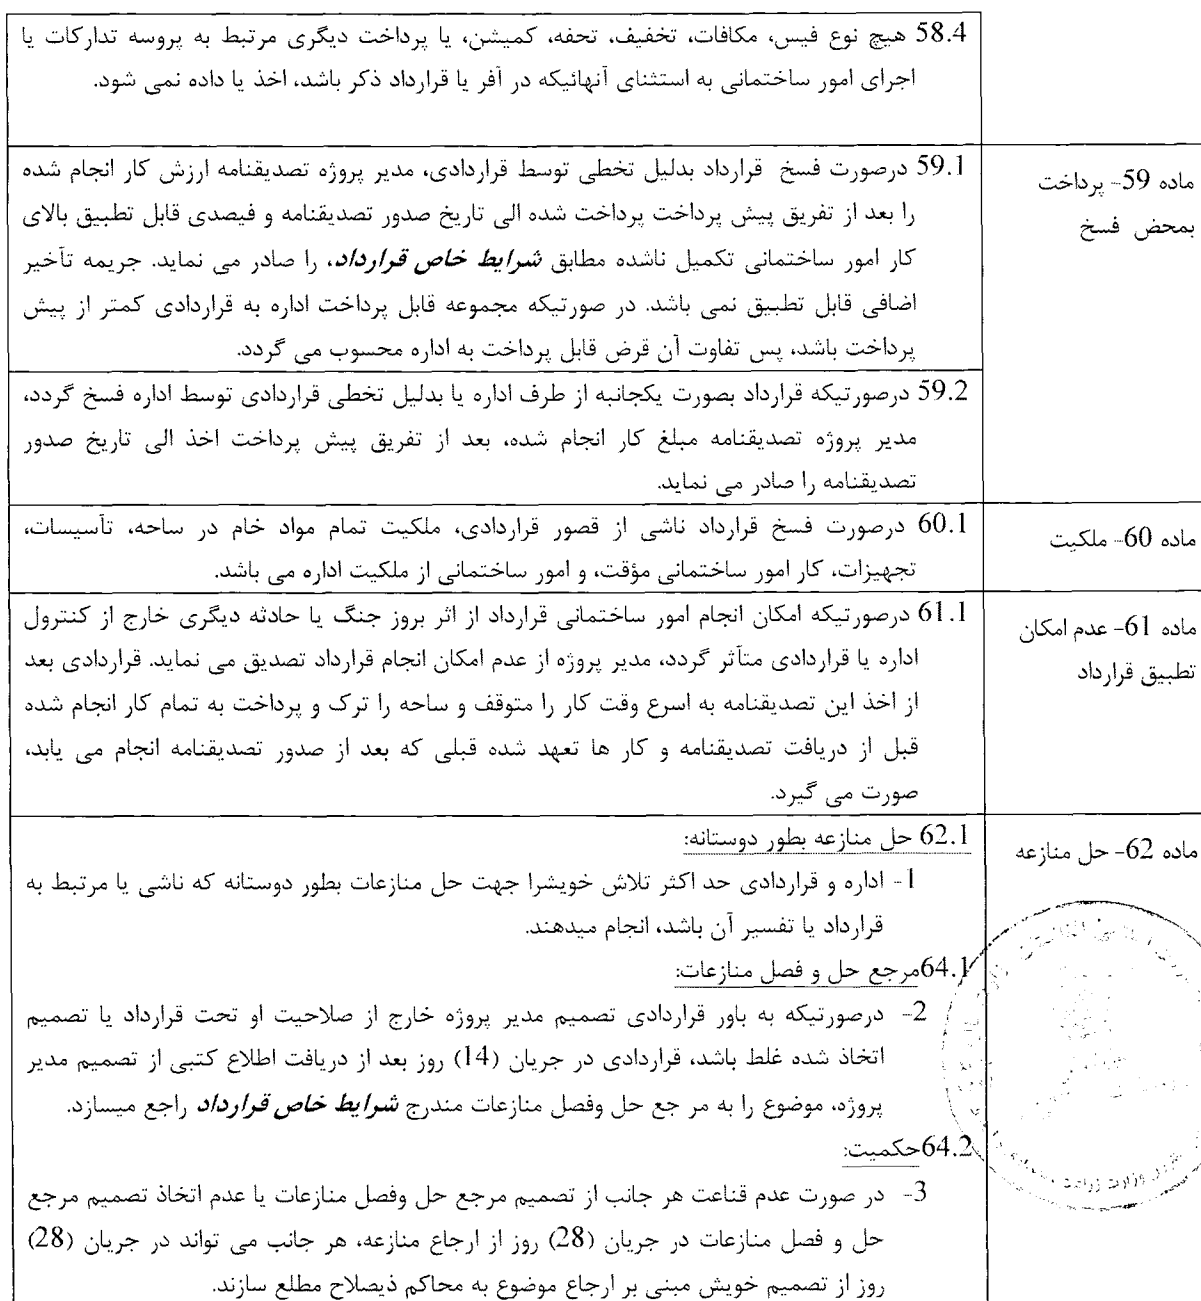 58.4 هیچ نوع فیس، مکافات، تخفیف، تحفه، کمیشن، یا پرداخت دیگری مرتبط به پروسه تدارکات یا
اجرای امور ساختمانی به استثنای آنهائیکه در آفر یا قرارداد ذکر باشد، اخذ یا داده نمی شود.
ماده 59- پرداخت
بمحض فسخ
59.1 درصورت فسخ قرارداد بدلیل تخطی توسط قراردادی، مدیر پروژه تصدیقنامه ارزش کار انجام شده
را بعد از تفریق پیش پرداخت پرداخت شده الی تاریخ صدور تصدیقنامه و فیصدی قابل تطبیق بالای
کار امور ساختمانی تکمیل ناشده مطابق شرایط خاص قرارداد، را صادر می نماید. جریمه تأخیر
اضافی قابل تطبیق نمی باشد. در صورتیکه مجموعه قابل پرداخت اداره به قراردادی کمتر از پیش
پرداخت باشد، پس تفاوت آن قرض قابل پرداخت به اداره محسوب می گردد.
59.2 درصورتیکه قرارداد بصورت یکجانبه از طرف اداره یا بدلیل تخطی قراردادی توسط اداره فسخ گردد،
مدیر پروژه تصدیقنامه مبلغ کار انجام شده، بعد از تفریق پیش پرداخت اخذ الی تاریخ صدور
تصدیقنامه را صادر می نماید.
ماده 60- ملکیت
60.1 درصورت فسخ قرارداد ناشی از قصور قراردادی، ملکیت تمام مواد خام در ساحه، تأسیسات،
تجهیزات، کار امور ساختمانی مؤقت، و امور ساختمانی از ملکیت اداره می باشد.
ماده 61- عدم امکان
تطبیق قرارداد
61.1 درصورتیکه امکان انجام امور ساختمانی قرارداد از اثر بروز جنگ یا حادثه دیگری خارج از کنترول
اداره یا قراردادی متأثر گردد، مدیر پروژه از عدم امکان انجام قرارداد تصدیق می نماید. قراردادی بعد
از اخذ این تصدیقنامه به اسرع وقت کار را متوقف و ساحه را ترک و پرداخت به تمام کار انجام شده
قبل از دریافت تصدیقنامه و کار ها تعهد شده قبلی که بعد از صدور تصدیقنامه انجام می یابد،
صورت می گیرد.
ماده 62- حل منازعه
62.1 حل منازعه بطور دوستانه:
1- اداره و قراردادی حد اکثر تلاش خویشرا جهت حل منازعات بطور دوستانه که ناشی یا مرتبط به
قرارداد یا تفسیر آن باشد، انجام میدهند.
64.1مرجع حل و فصل منازعات:
2- درصورتیکه به باور قراردادی تصمیم مدیر پروژه خارج از صلاحیت او تحت قرارداد یا تصمیم
اتخاذ شده غلط باشد، قراردادی در جریان (14) روز بعد از دریافت اطلاع کتبی از تصمیم مدیر
پروژه، موضوع را به مر جع حل وفصل منازعات مندرج شرایط خاص قرارداد راجع میسازد.
64.2حکمیت:
3- در صورت عدم قناعت هر جانب از تصمیم مرجع حل وفصل منازعات یا عدم اتخاذ تصمیم مرجع
حل و فصل منازعات در جریان (28) روز از ارجاع منازعه، هر جانب می تواند در جریان (28)
روز از تصمیم خویش مبنی بر ارجاع موضوع به محاکم ذیصلاح مطلع سازند.
وزارت زراعت